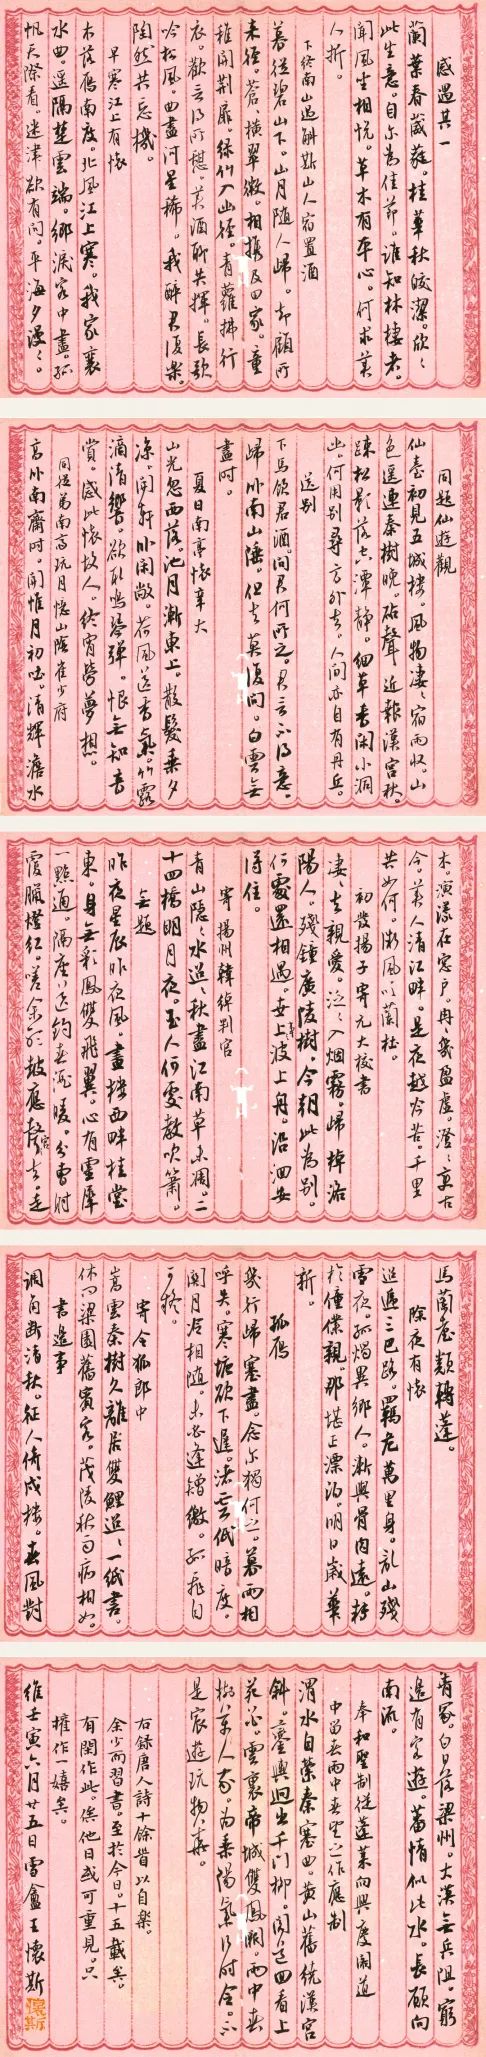 感遇其一
蘭葉春葳蕤。桂華秋皎潔。欣〻
此生意。自尔為佳節。誰知林棲者。
聞風坐相悦。草木有本心。何求美
人折。
下終南山過斛斯山人宿置酒
暮從碧山下。山月隨人歸。却顧所
来徑。蒼〻橫翠微。相攜及田家。童
稚開荆扉。綠竹入幽徑。青蘿拂行
衣。歡言得所憩。美酒聊共揮。長歌
吟松風。曲盡河星稀。我醉君復樂。
陶然共忘機。
早寒江上有懷
木落雁南度。北風江上寒。我家襄
水曲。遥隔楚雲端。鄉淚客中盡。孤
帆天際看。迷津欲有問。平海夕漫〻。
同題仙遊觀
仙臺初見五城樓。風物凄〻宿雨收。山
色遥連秦樹晚。砧聲近報漢宮秋。
疎松影落空潭静。細草香閑小洞
幽。何用別尋方外去。人間亦自有丹丘。
送別
下馬飲君酒。問君何所之。君言不得意。
歸卧南山陲。但去莫復問。白雲無
盡时。
夏日南亭懷辛大
山光忽西落。池月漸東上。散髮乘夕
凉。開軒卧閑敞。荷風送香氣。竹露
滴清響。欲取鳴琴彈。恨無知音
賞。感此懷故人。終宵勞夢想。
同從弟南斎玩月憶山陰崔少府
高卧南齋时。開帷月初吐。清輝澹水
木。演漾在窓户。冉〻幾盈虚。澄〻變古
今。美人清江畔。是夜越吟苦。千里
共如何。微風吹蘭杜。
初發揚子寄元大校書
凄〻去親愛。泛〻入烟霧。歸棹洛
陽人。殘鍾廣陵樹。今朝此為別。
何處還相遇。世事波上舟。沿洄安
得住。
寄揚州韓綽判官
青山隠〻水迢〻。秋盡江南草未凋。二
十四橋明月夜。玉人何處教吹簫。
無題
昨夜星辰昨夜風。畫樓西畔桂堂
東。身無彩鳳雙飛翼。心有靈犀
一點通。隔座送鈎春酒暖。分曹射
覆臘燈红。嗟余聽鼓應官去。走
馬蘭臺類轉蓬。
除夜有懷
迢遞三巴路。羈危萬里身。亂山殘
雪夜。孤燭異鄉人。漸與骨肉遠。轉
於僮僕親。那堪正漂泊。明日歲華
新。
孤雁
幾行歸塞盡。念尔獨何之。暮雨相
呼失。寒塘欲下遲。渚雲低暗度。
關月冷相随。未必逢矰繳。孤飛自
可疑。
寄令狐郎中
嵩雲秦樹久離居。雙鯉迢〻一紙書。
休问梁園舊賓客。茂陵秋雨病相如。
書邊事
調角斷清秋。征人倚戍樓。春風對
青冢。白日落梁州。大漢無兵阻。窮
邊有客遊。蕃情似此水。長願向
南流。
奉和聖制從蓬萊向興慶閣道
中留春雨中春望之作應制
渭水自縈秦塞曲。黄山舊繞漢宮
斜。鑾輿迥出千门柳。閣道迴看上
苑花。雲裏帝城雙鳳闕。雨中春
樹萬人家。为乘陽氣行时令。不
是宸遊玩物華。
右録唐人詩十餘首以自樂。
余少而習書。至於今日。十五載矣。
有閑作此。俟他日或可重見。只
權作一嬉矣。
維壬寅六月廿五日雪盦王懷斯
懷斯